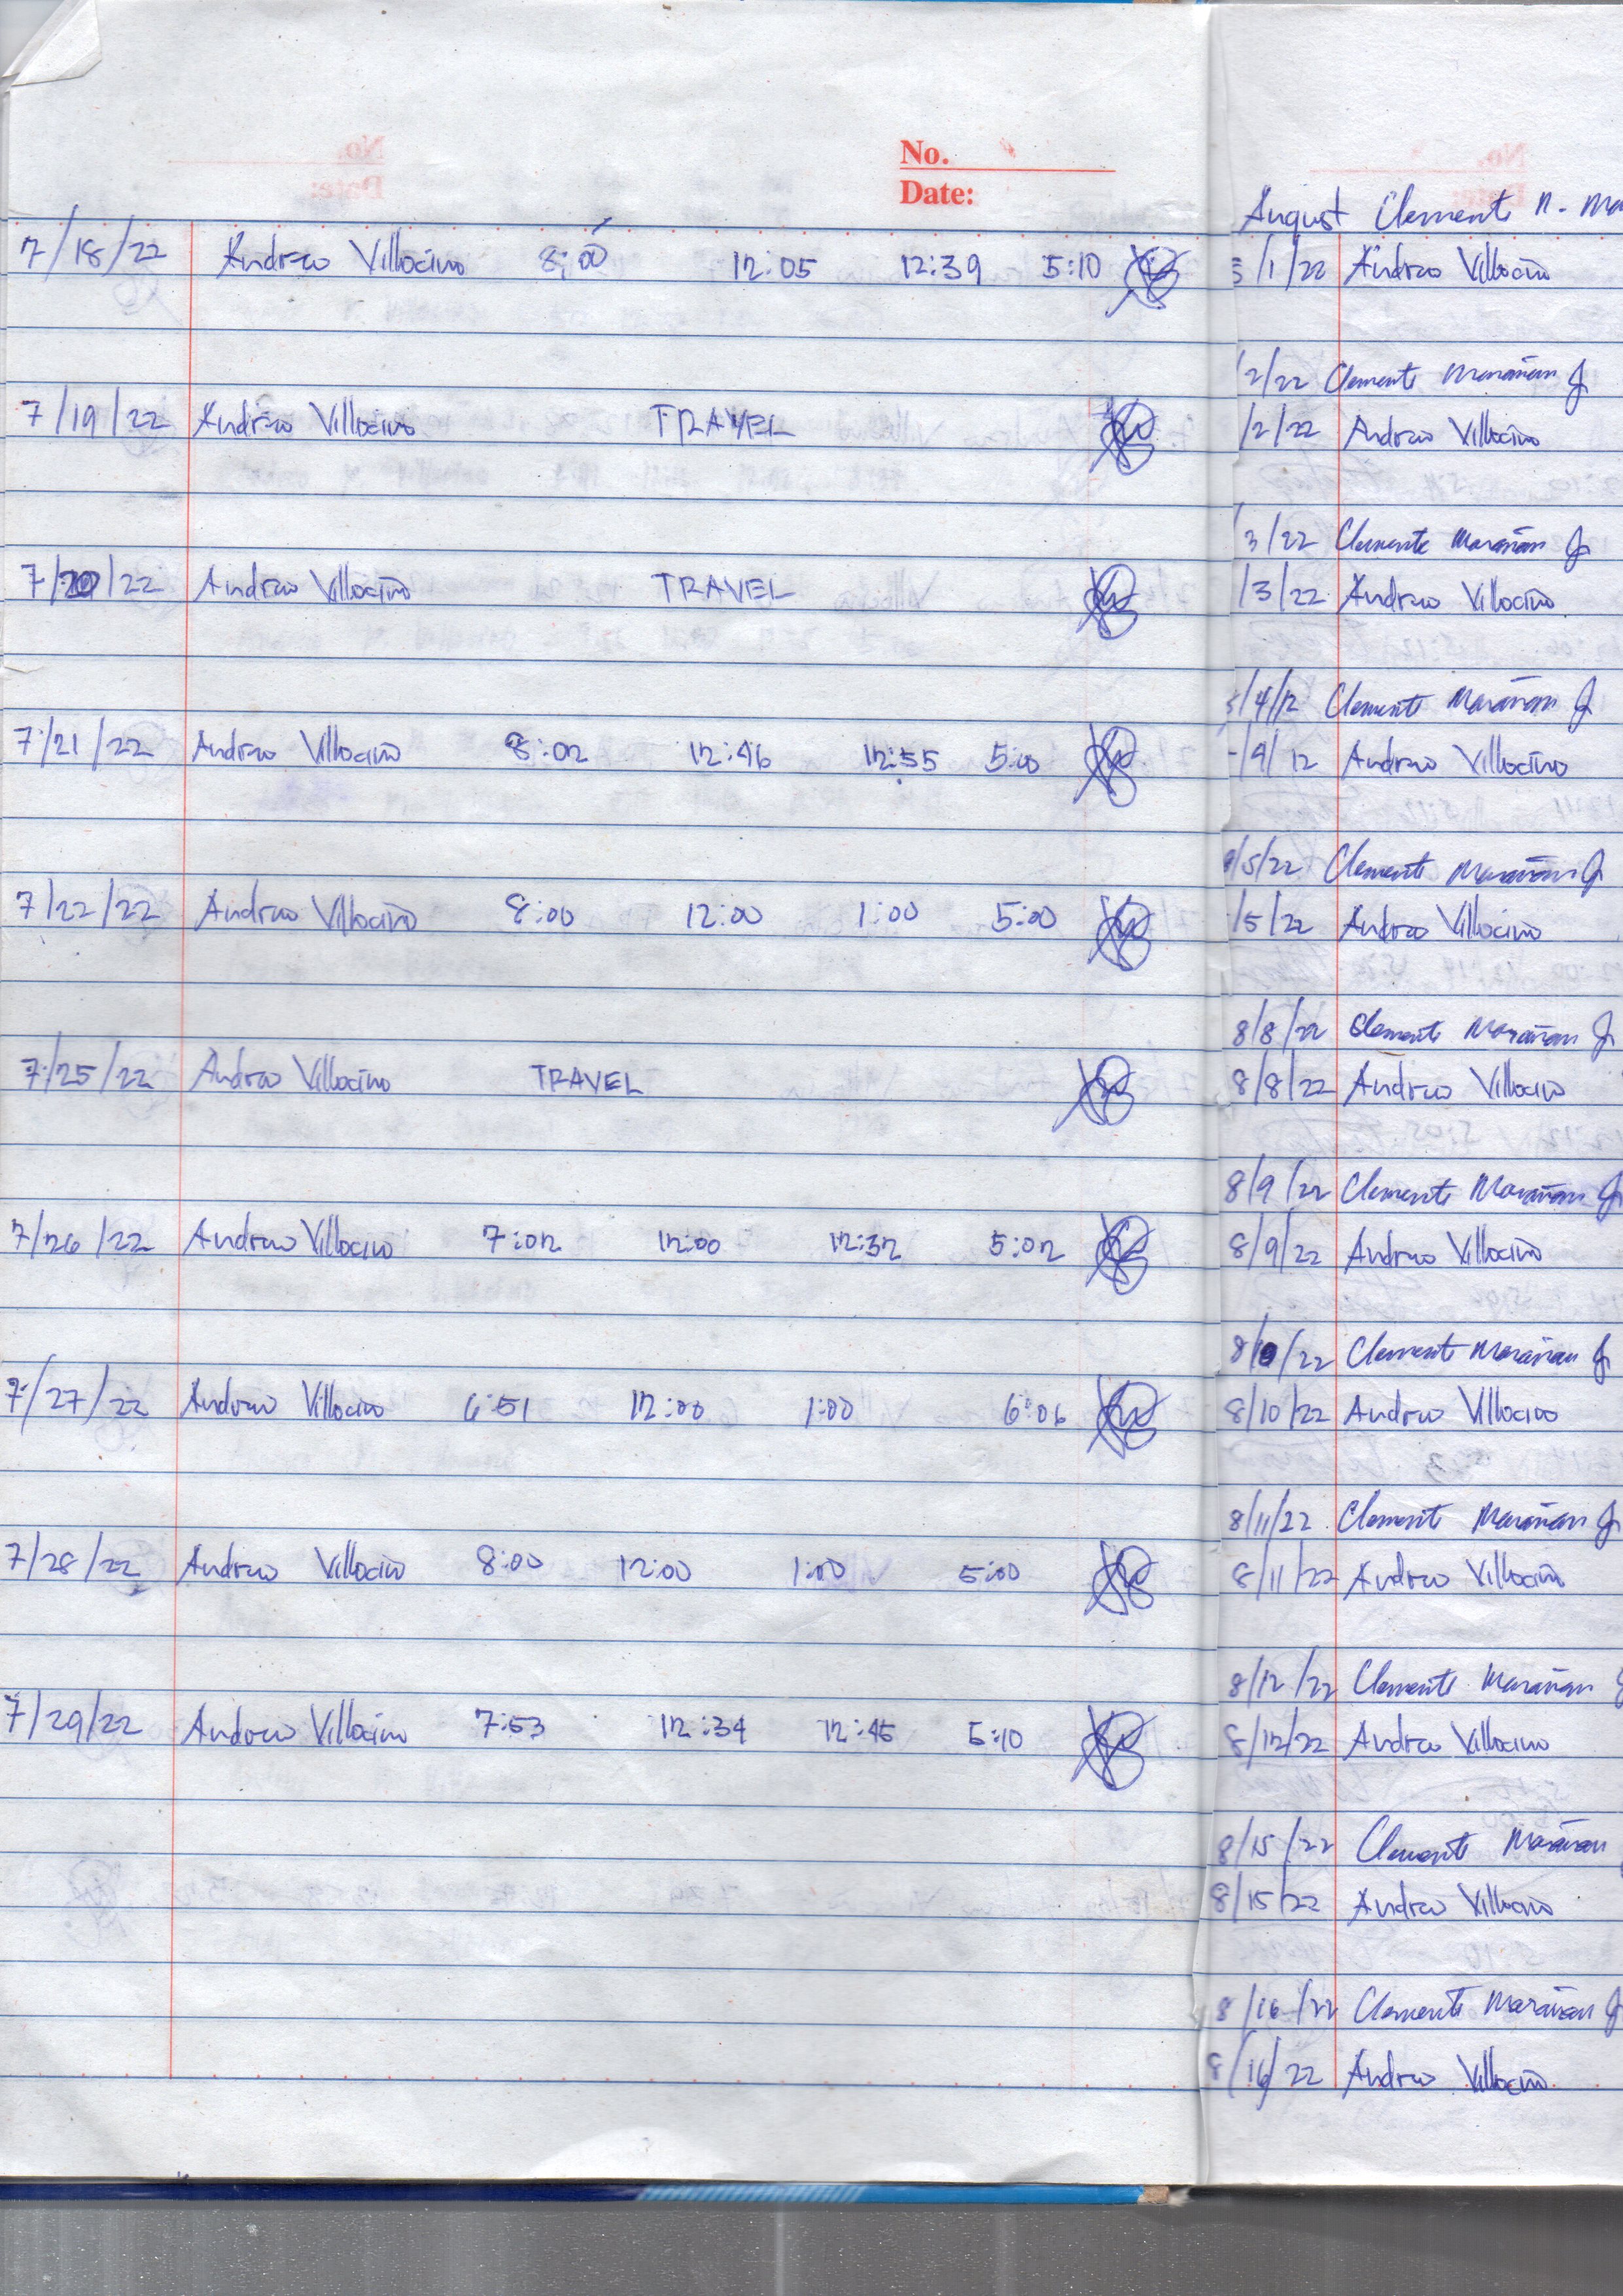 No.
Date:
7/18/22 Andrew Villocino 8:00 12:05 12:39 5:10
7/19/22 Andrew Villocino TRAVEL
7/20/22 Andrew Villocino TRAVEL
7/21/22 Andrew Villocino 8:02 12:46 12:55 5:00
7/22/22 Andrew Villocino 8:00 12:00 1:00 5:00
7/25/22 Andrew Villocino TRAVEL
7/26/22 Andrew Villocino 7:02 12:00 12:32 5:02
7/27/22 Andrew Villocino 6:51 12:00 1:00 6:06
7/28/22 Andrew Villocino 8:00 12:00 1:00 5:00
7/29/22 Andrew Villocino 7:53 12:34 12:45 5:10
August Clemente N. Ma
/1/22 Andrew Villocino
/2/22 Clemente Marañan Jr
/2/22 Andrew Villocino
/3/22 Clemente Marañan Jr
/3/22 Andrew Villocino
/4/12 Clemente Marañan Jr
/4/12 Andrew Villocino
/5/22 Clemente Marañan Jr
/5/22 Andrew Villocino
8/8/22 Clemente Marañan Jr
8/8/22 Andrew Villocino
8/9/22 Clemente Marañan Jr
8/9/22 Andrew Villocino
8/10/22 Clemente Marañan Jr
8/10/22 Andrew Villocino
8/11/22 Clemente Marañan Jr
8/11/22 Andrew Villocino
8/12/22 Clemente Marañan
8/12/22 Andrew Villocino
8/15/22 Clemente Marañan
8/15/22 Andrew Villocino
8/16/22 Clemente Marañan Jr
8/16/22 Andrew Villocino